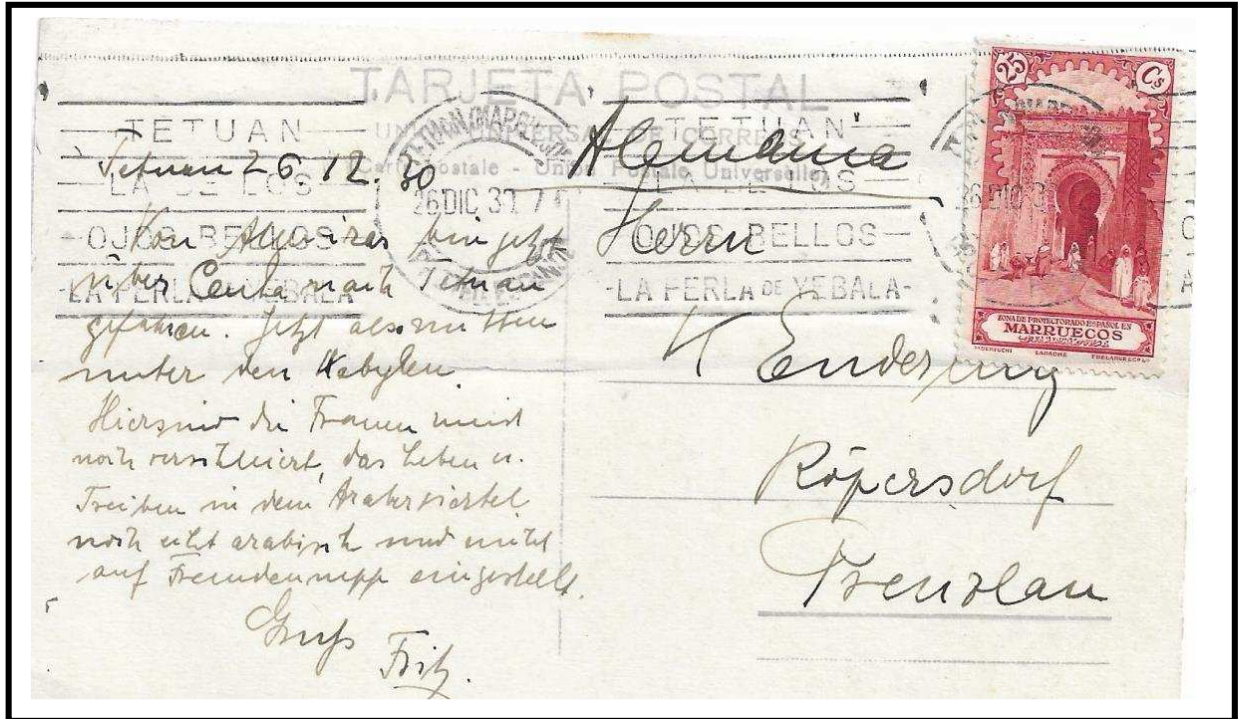 TARJETA POSTAL
UNION UNIVERSAL DE CORREOS
Carte Postale - Union Postale Universelle
TETUAN
LA DE LOS
OJOS BELLOS
LA PERLA DE YEBALA
TETUAN (MARRUECOS)
26 DIC 30 7
TETUAN
LA DE LOS
OJOS BELLOS
LA PERLA DE YEBALA
25 Cs
ZONA DE PROTECTORADO ESPAÑOL EN
MARRUECOS
Tetuan 26.12.30
Von Algeciras bin jetzt
über Ceuta nach Tetuan
gefahren. Jetzt also mitten
unter den Kabylen.
Hier sind die Frauen meist
noch verschleiert, das Leben u.
Treiben in dem Araberviertel
noch echt arabisch und nicht
auf Fremdennepp eingestellt.
Gruß
Fritz.
Alemania
Herrn
Röpersdorf
Prenzlau